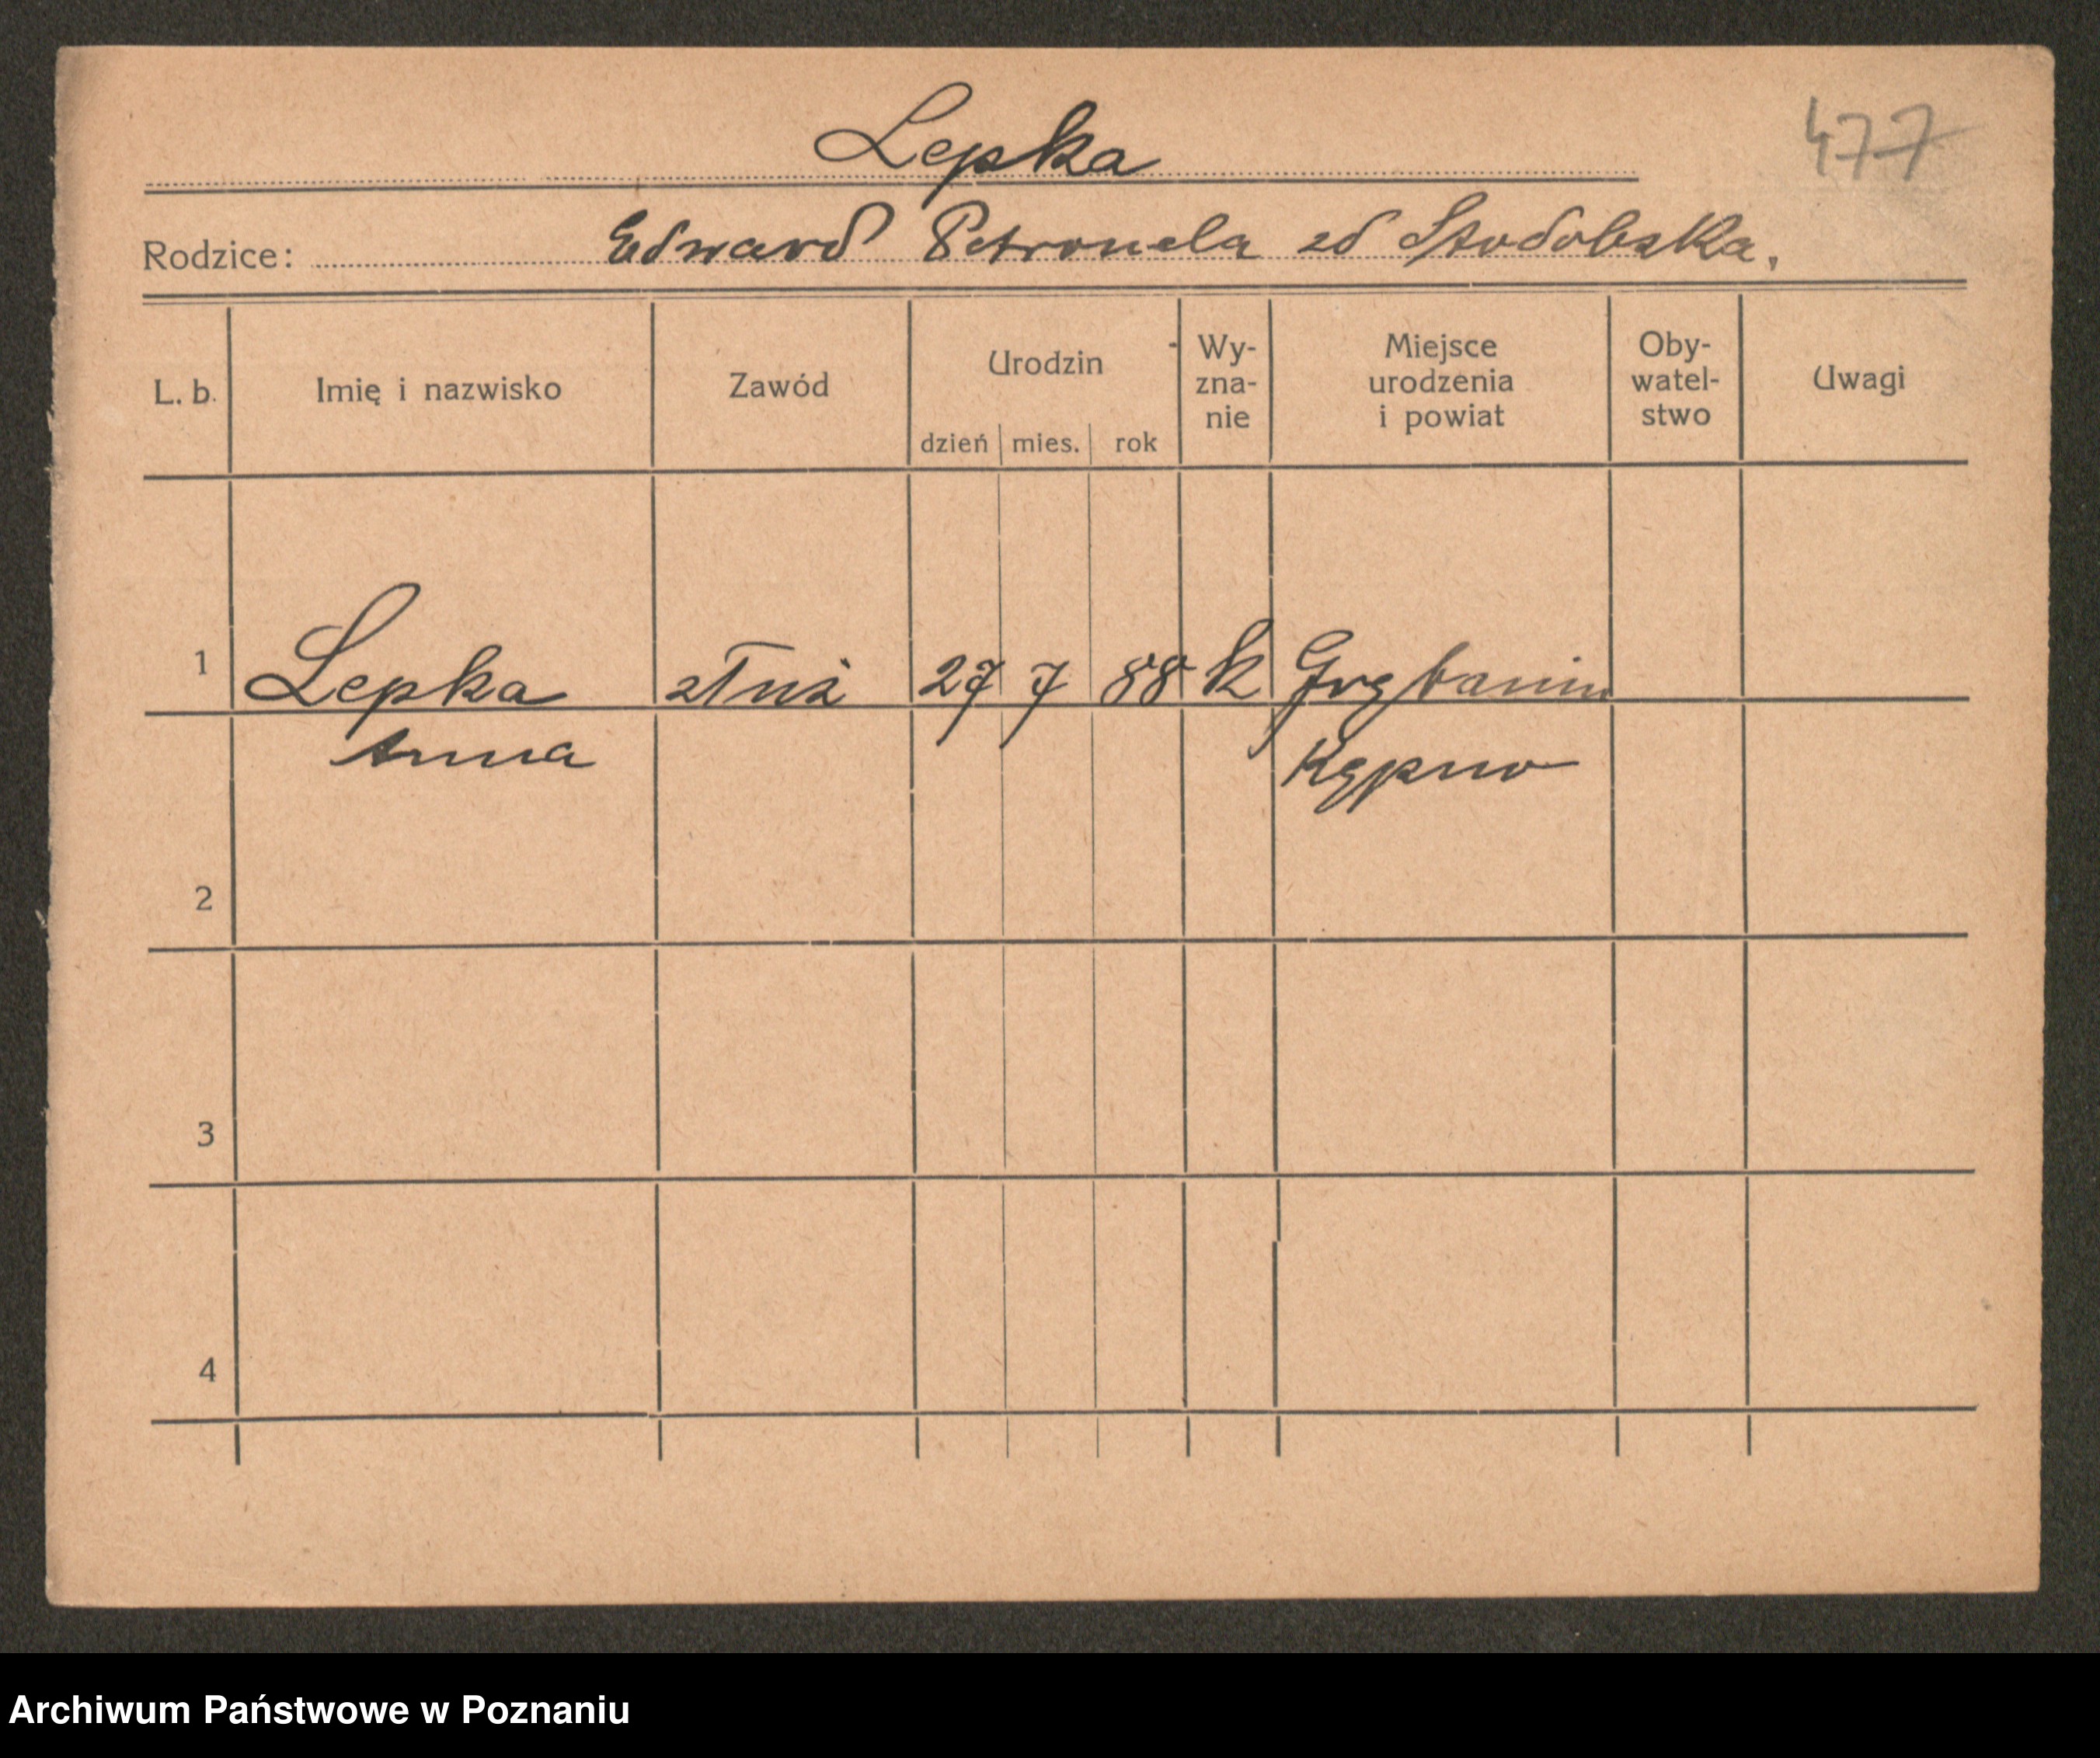 Lepka
477
Rodzice: Edward Petronela zd
L. b. Imię i nazwisko Zawód Urodzin dzień mies. rok Wy-zna-nie Miejsce urodzenia i powiat Oby-watel-stwo Uwagi
1 Lepka służ 27 7 88 k Grębanin
Anna Kępno
2
3
4
Archiwum Państwowe w Poznaniu